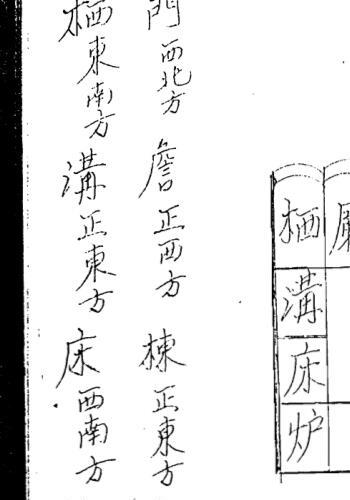 栖 溝 床 炉
門西北方 詹正西方 棟正東方
栖東南方 溝正東方 床西南方